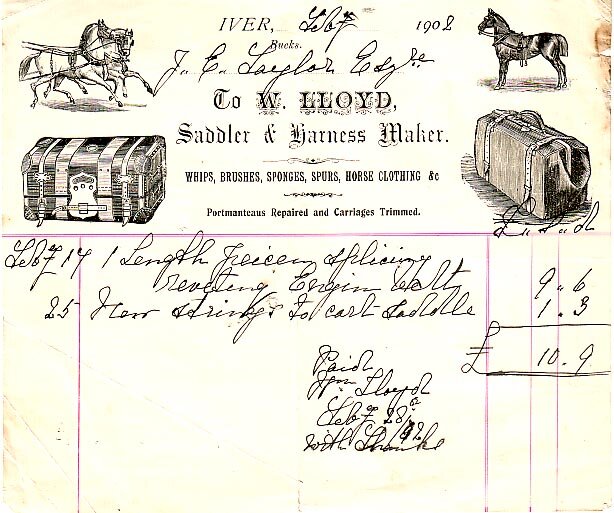 IVER, Feby 1902
Bucks.
J. E. Taylor Esqre
To W. LLOYD,
Saddler & Harness Maker.
WHIPS, BRUSHES, SPONGES, SPURS, HORSE CLOTHING &c
Portmanteaus Repaired and Carriages Trimmed.
£ s d
Feby 17 1 Length splicing
Engin 9 . 6
25 New strings to cart saddle 1 . 3
£ 10 . 9
Paid
Wm Lloyd
Feby 28
With Thanks